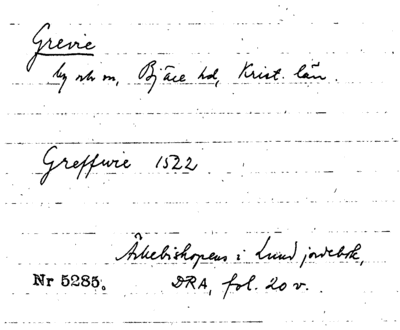 Grevie
by och sn, Bjäre hd, Krist. län.
Greffwie 1522
Ärkebiskopens i Lund jordebok,
Nr 5285. DRA, fol. 20 v.